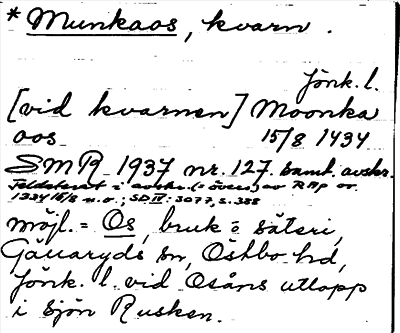 * Munkaos, kvarn.
Jönk. l.
[vid kvarnen] Moonka
oos 15/8 1434
SMR 1937 nr. 127. samt. avskr.
Feldaterat i avskr. (= övers.) av RAp or.
1334 15/8 n.o.; SD IV: 3077, s. 388
möjl. = Os, bruk o säteri,
Gällaryds sn, Östbo hd,
Jönk. l. vid Osåns utlopp
i sjön Rusken.